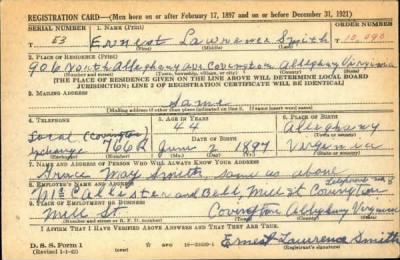 REGISTRATION CARD—(Men born on or after February 17, 1897 and on or before December 31, 1921)
SERIAL NUMBER 1. NAME (Print) ORDER NUMBER
T 53 Ernest Lawrence Smith T 10,090
(First) (Middle) (Last)
2. PLACE OF RESIDENCE (Print)
906 North Alleghany Ave Covington Alleghany Virginia
(Number and street) (Town, township, village, or city) (County) (State)
[THE PLACE OF RESIDENCE GIVEN ON THE LINE ABOVE WILL DETERMINE LOCAL BOARD
JURISDICTION; LINE 2 OF REGISTRATION CERTIFICATE WILL BE IDENTICAL]
3. MAILING ADDRESS
Same
(Mailing address if other than place indicated on line 2. If same insert word same)
4. TELEPHONE 5. AGE IN YEARS 6. PLACE OF BIRTH
44 Alleghany
Local (Covington) DATE OF BIRTH
Exchange 766R June 2 1897 Virginia
7. NAME AND ADDRESS OF PERSON WHO WILL ALWAYS KNOW YOUR ADDRESS
Grace May Smith, same as above
8. EMPLOYER'S NAME AND ADDRESS
McCallister and Bell, Mill St Covington
9. PLACE OF EMPLOYMENT OR BUSINESS
Mill St Covington Alleghany Virginia
I AFFIRM THAT I HAVE VERIFIED ABOVE ANSWERS AND THAT THEY ARE TRUE.
D. S. S. Form 1
(Revised 1-1-42) Ernest Lawrence Smith